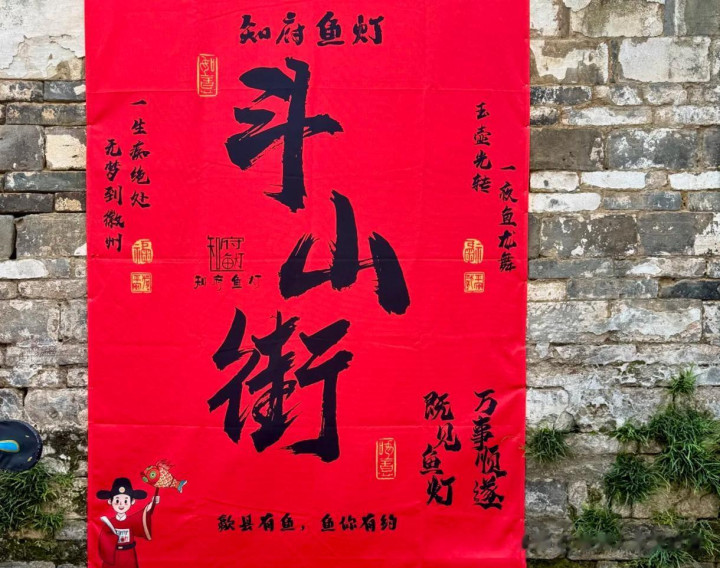 知府鱼灯
斗山街
一生痴绝处
无梦到徽州
玉壶光转
一夜鱼龙舞
知府鱼灯
知府鱼灯
既见鱼灯
万事顺遂
歙县有鱼，鱼你有约